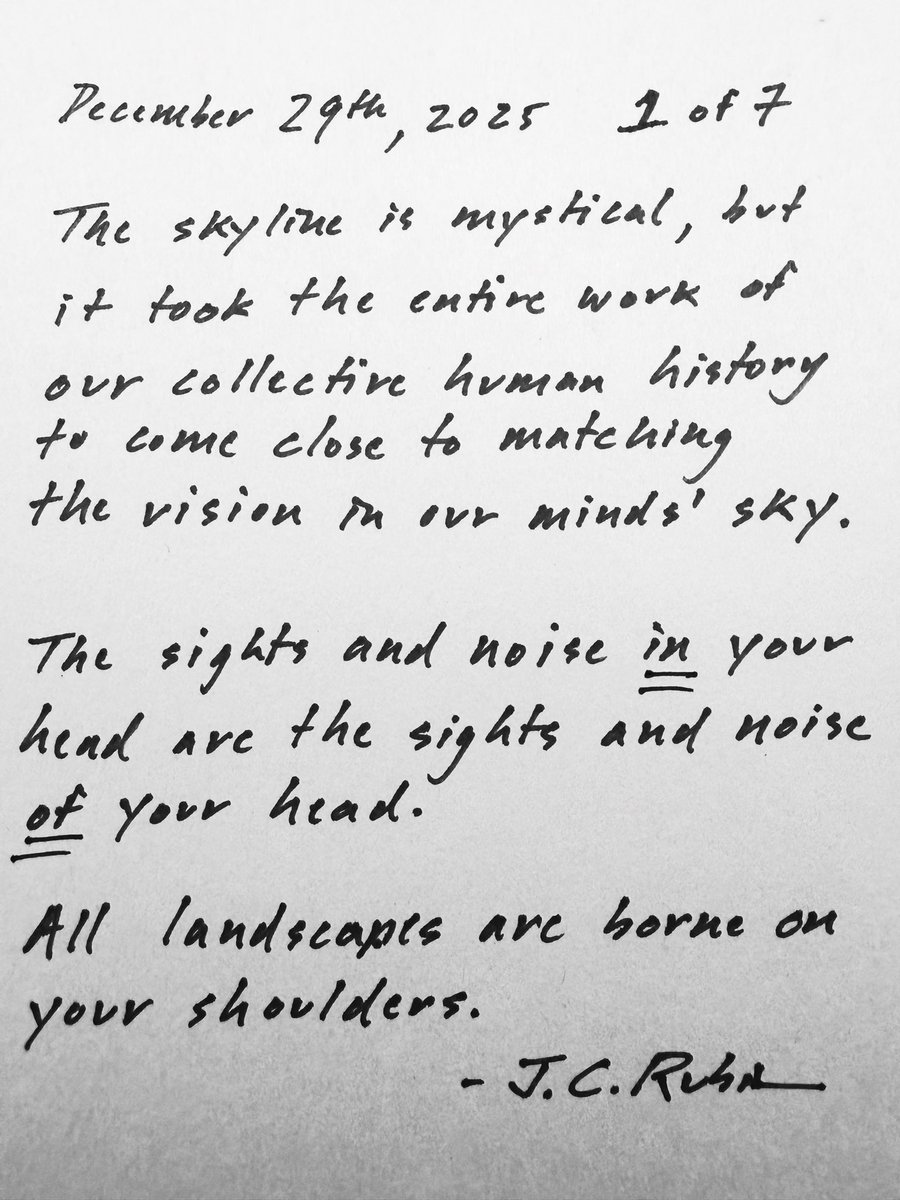 December 29th, 2025 1 of 7
The skyline is mystical, but
it took the entire work of
our collective human history
to come close to matching
the vision in our minds' sky.
The sights and noise in your
head are the sights and noise
of your head.
All landscapes are borne on
your shoulders.
- J.C.